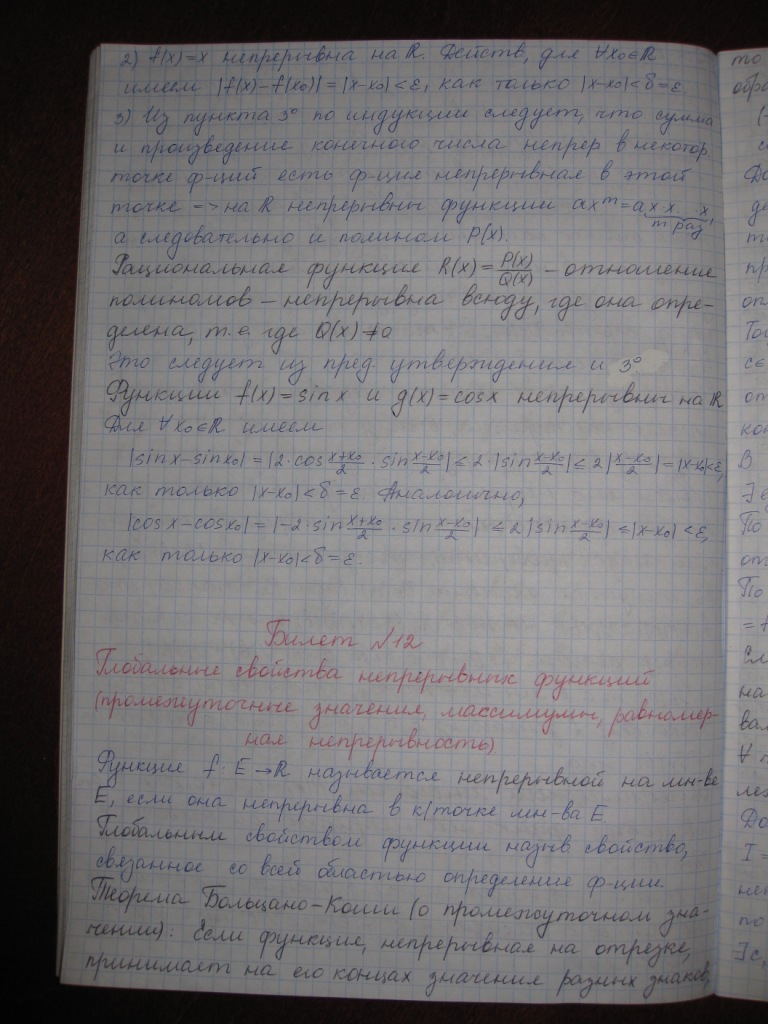 2) f(x)=x непрерывна на R. Действ, для ∀x₀∈R
имеем |f(x)-f(x₀)|=|x-x₀|<ε, как только |x-x₀|<δ=ε.
3) Из пункта 3° по индукции следует, что сумма
и произведение конечного числа непрер в некотор
точке ф-ций есть ф-ция непрерывная в этой
точке => на R непрерывны функции axᵐ=a x·x…x,
m раз
а следовательно и полином P(x).
Рациональная функция R(x)=P(x)/Q(x) – отношение
полиномов – непрерывна всюду, где она опре-
делена, т.е. где Q(x)≠0
Это следует из пред утверждения и 3°
Функции f(x)=sinx и g(x)=cosx непрерывны на R
Для ∀x₀∈R имеем
|sinx-sinx₀|=|2·cos (x+x₀)/2 · sin (x-x₀)/2|≤2·|sin (x-x₀)/2|≤2|(x-x₀)/2|=|x-x₀|<ε,
как только |x-x₀|<δ=ε. Аналогично,
|cosx-cosx₀|=|-2·sin (x+x₀)/2 · sin (x-x₀)/2| ≤2|sin (x-x₀)/2| ≤|x-x₀|<ε,
как только |x-x₀|<δ=ε.
Билет №12
Глобальные свойства непрерывных функций
(промежуточные значения, максимумы, равномер-
ная непрерывность)
Функция f: E→R называется непрерывной на мн-ве
E, если она непрерывна в к/точке мн-ва E.
Глобальным свойством функции назыв свойство,
связанное со всей областью определения ф-ции.
Теорема Больцано-Коши (о промежуточном зна-
чении): Если функция, непрерывная на отрезке,
принимает на его концах значения разных знаков,